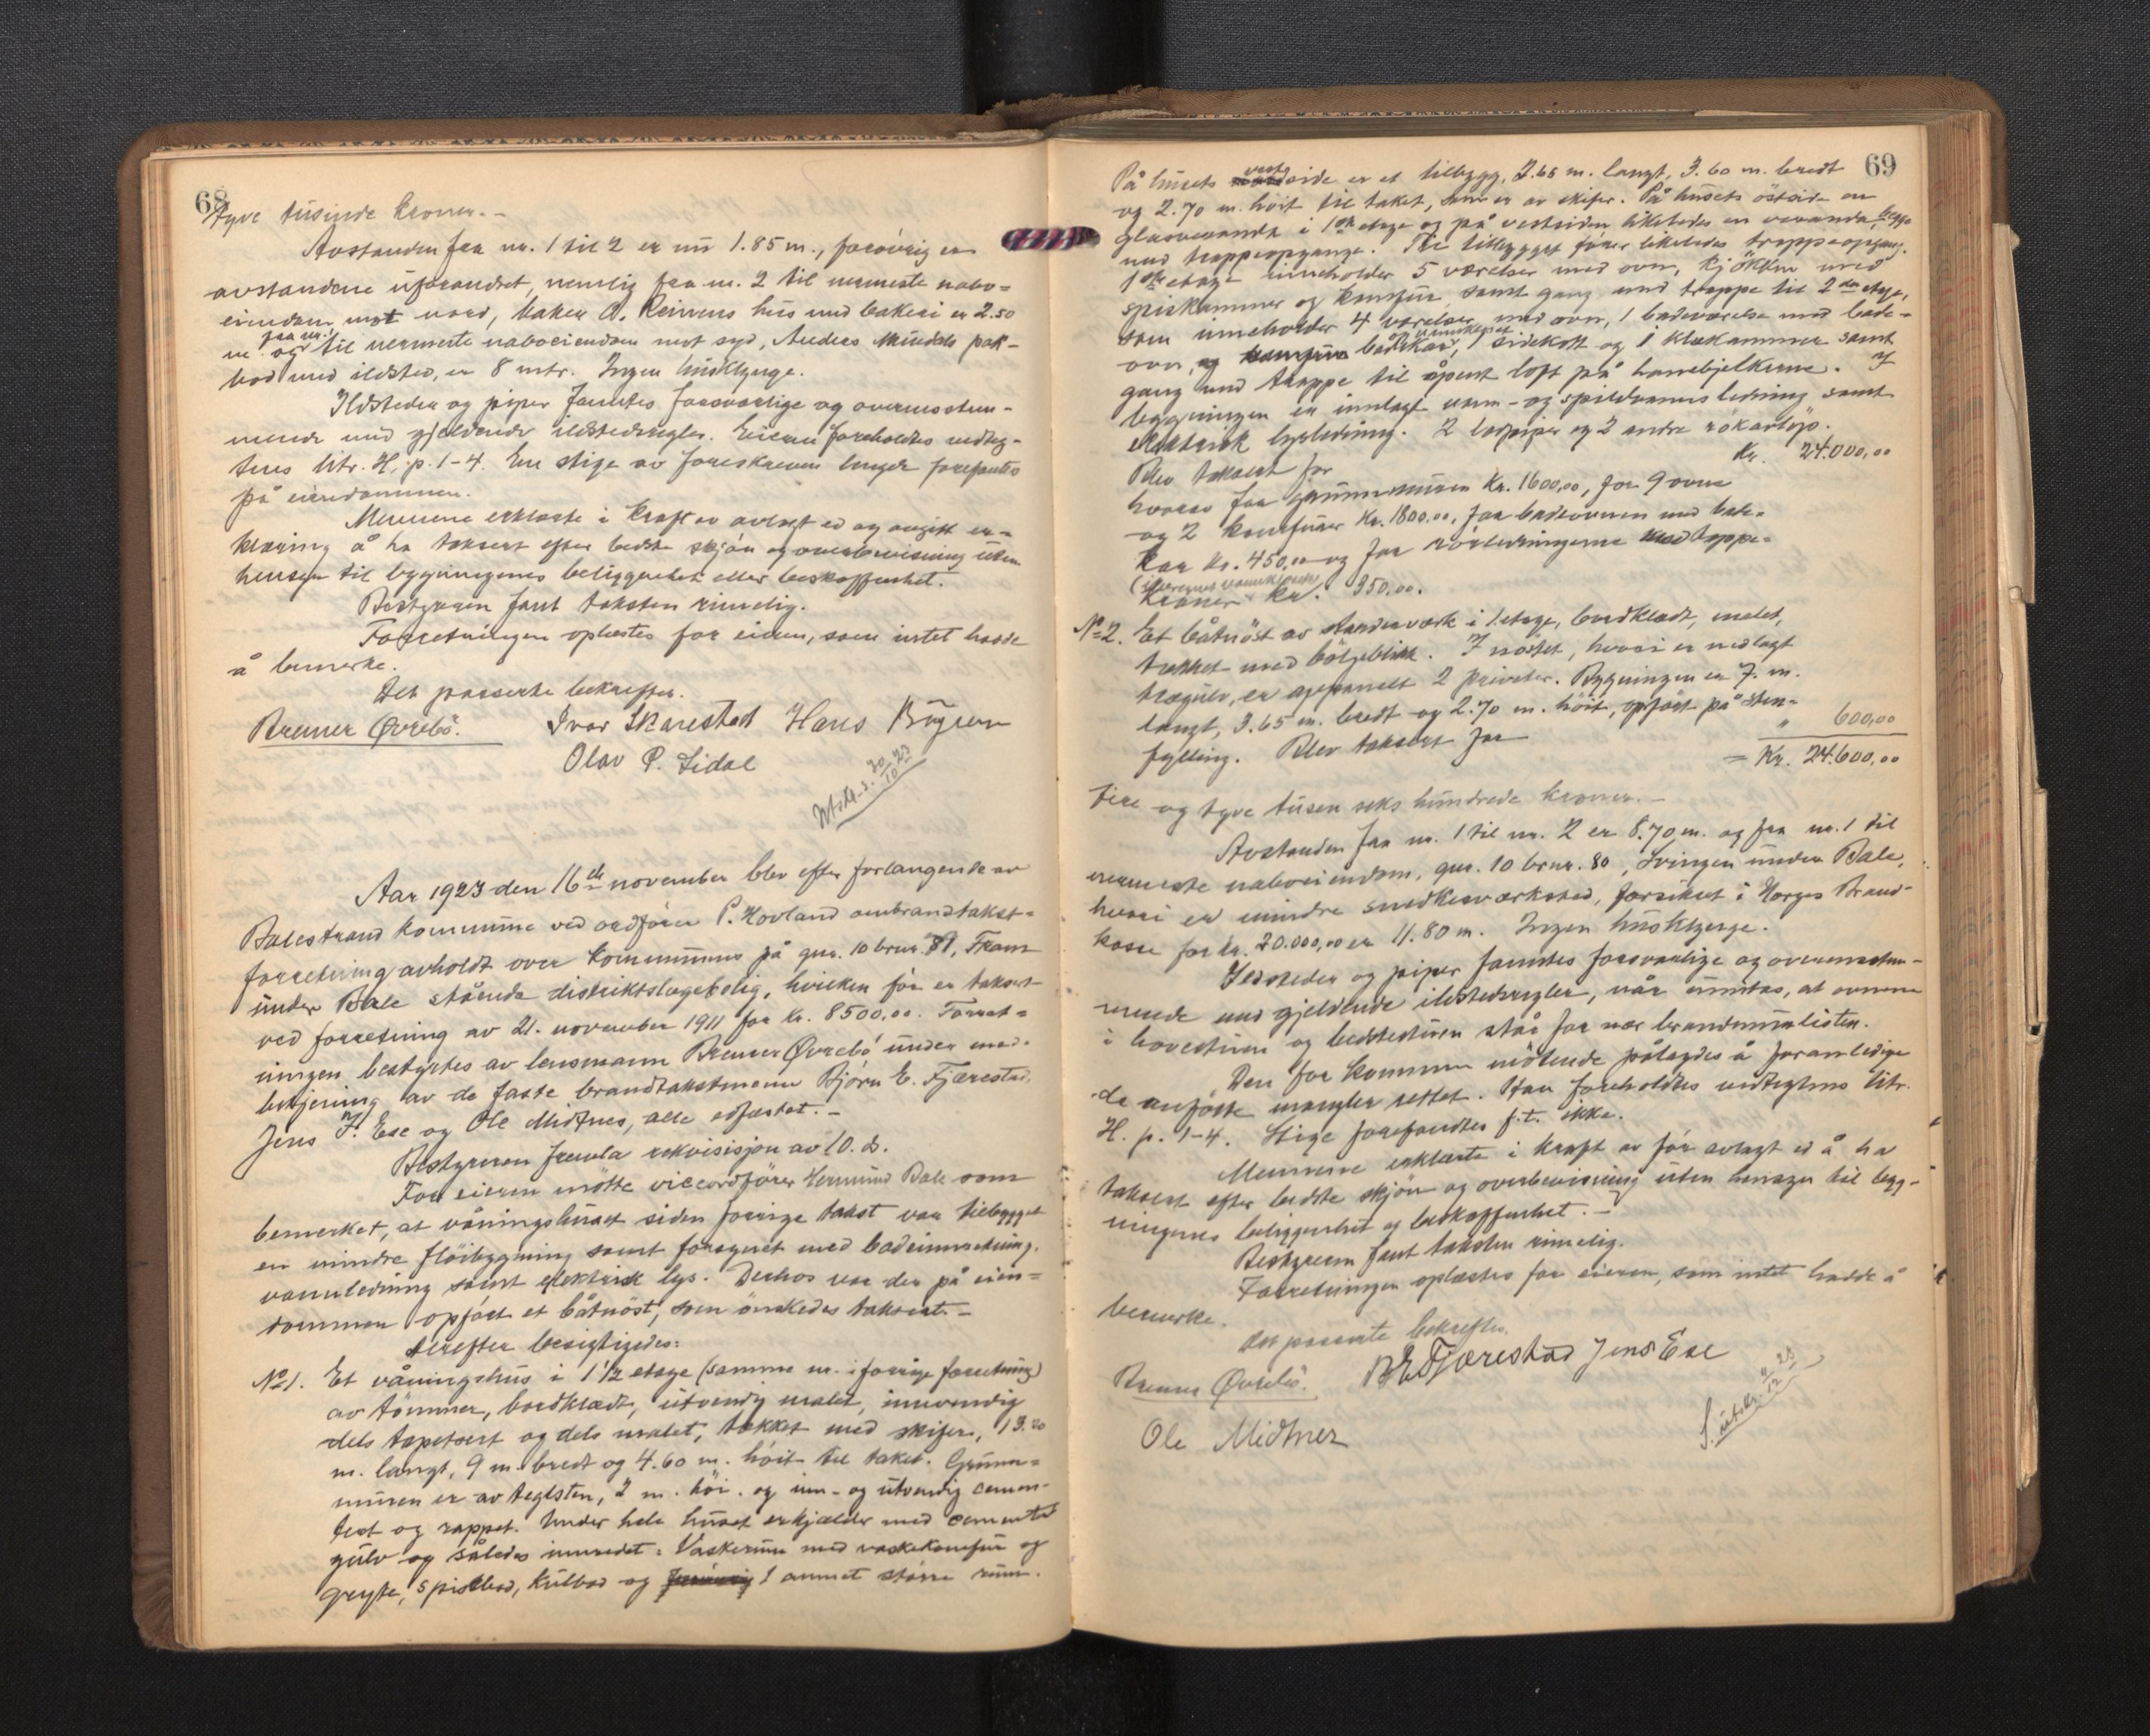 68
tyve tusinde kroner.-
Avstanden fra nr. 1 til 2 er nu 1.85 m., forøvrig er
avstandene uforandret, nemlig fra nr. 2 til nærmeste nabo-
eiendom mot nord, baker O. Reinens hus med bakeri er 2.50
m. og fra nr. 1 til nærmeste naboeiendom mot syd, Anders Mundals pak-
bod med ildsted, er 8 mtr. Ingen husklynge.
Ildsteder og piper fantes forsvarlige og overensstem-
mende med gjeldende ildstedsregler. Eieren foreholdtes vedteg-
tenes litr. H, p. 1-4. En stige av foreskreven lengde forefantes
på eiendommen.
Mennene erklærte i kraft av avlagt ed og avgitt er-
klæring å ha taksert efter bedste skjøn og overbevisning uten
hensyn til bygningenes beliggenhet eller beskaffenhet.
Bestyreren fant taksten rimelig.
Forretningen oplæstes for eieren, som intet hadde
å bemerke.
Det passerte bekreftes.
Bremer Øvrebö. Ivar Skarestad Hans Bøyum
Olav P. Lidal
Utskr. s. 20/10 23
Aar 1923 den 16de november blev efter forlangende av
Balestrand kommune ved ordfører P. Hovland ombrandtakst-
forretning avholdt over kommunens på gnr. 10 brnr. 81, Fram
under Bale stående distriktslægebolig, hvilken før er taksert
ved forretning av 21. november 1911 for kr. 8500,00. Forret-
ningen bestyrtes av lensmann Bremer Øvrebö under med-
betjening av de faste brandtakstmenn Bjørn E. Fjærestad,
Jens J. Ese og Ole Midtnes, alle edfæstet.-
Bestyreren fremla rekvisisjon av 10. ds.
For eieren møtte viceordfører Hermund Bale som
bemerket, at våningshuset siden forrige takst var tilbygget
en mindre fløibygning samt forsynet med badeinnretning,
vannledning samt elektrisk lys. Derhos var der på eien-
dommen opført et båtnöst, som ønskedes taksert.-
Derefter besigtigedes:
No 1. Et våningshus i 1 1/2 etage (samme nr. i forrige forretning)
av tømmer, bordklædt, utvendig malet, innvendig
dels tapetsert og dels malet, tækket med skifer, 13.20
m. langt, 9 m. bredt og 4.60 m. høit til taket. Grunn-
muren er av teglsten, 2 m. høi. og inn- og utvendig cemen-
tert og rappet. Under hele huset er kjælder med cementert
gulv og således innredet: Vaskerum med vaskekomfur og
gryte, spisebod, kulbod og 1 annet større rum.
69
På husets vestside er et tilbygg, 3.65 m. langt, 3.60 m. bredt
og 2.70 m. høit til taket, som er av skifer. På husets östside en
glasveranda i 1ste etage og på vestsiden likeledes en veranda, begge
med trappeopgange. Til tilbygget fører likeledes trappeopgang.
1ste etage inneholder 5 værelser med ovn, kjökken med
spiskammer og komfur samt gang med trappe til 2den etage,
som inneholder 4 værelser med ovn, 1 badeværelse med bade-
ovn, og badekar, 1 sidekott og 1 klækammer samt
gang med trappe til åpent loft på hanebjelkerne. I
bygningen er innlagt vann- og spildvannsledning samt
elektrisk lysledning. 2 lodpiper og 2 andre rökavløp.
Blev taksert for Kr. 24.000,00
hvorav for grunnmuren kr. 1600,00, for 9 ovne
og 2 komfurer kr. 1800,00, for badeovnen med bade-
kar kr. 450,00 og for rørledningerne med tappe-
kraner kr. 350,00.
No 2. Et båtnöst av standerværk i 1 etage, bordklædt, malet,
tækket med bölgeblikk. I nöstet, hvori er nedlagt
trægulv, er oppanelt 2 priveter. Bygningen er 7. m.
langt, 3.65 m. bredt og 2.70 m. höit, opført på sten-
fylling. Blev taksert for " 600,00
= Kr. 24.600,00
Fire og tyve tusen seks hundrede kroner.-
Avstanden fra nr. 1 til nr. 2 er 8.70 m. og fra nr. 1 til
nærmeste naboeiendom, gnr. 10 brnr. 80, Svingen under Bale,
hvori er mindre snedkerværksted, forsikret i Norges Brand-
kasse for kr. 20.000,00 er 11.80 m. Ingen husklynge.
Ildsteder og piper fantes forsvarlige og overensstem-
mende med gjeldende ildstedsregler, når unntas, at ovnene
i hovedstuen og bedstestuen står for nær brandmurlisten.
Den for kommunen møtende pålagdes å foranledige
de anførte mangler rettet. Han foreholdtes vedtægtens litr.
H. p. 1-4. Stige forefandtes f.t. ikke.
Mennene erklærte i kraft av før avlagt ed å ha
taksert efter bedste skjön og overbevisning uten hensyn til byg-
ningenes beliggenhet og beskaffenhet.-
Bestyreren fant taksten rimelig.
Forretningen oplæstes for eieren, som intet hadde å
bemerke.
Det passerte bekreftes.
Bremer Øvrebö. B E Fjærestad Jens Ese
Ole Midtnes
S. utskr. 2/12 23